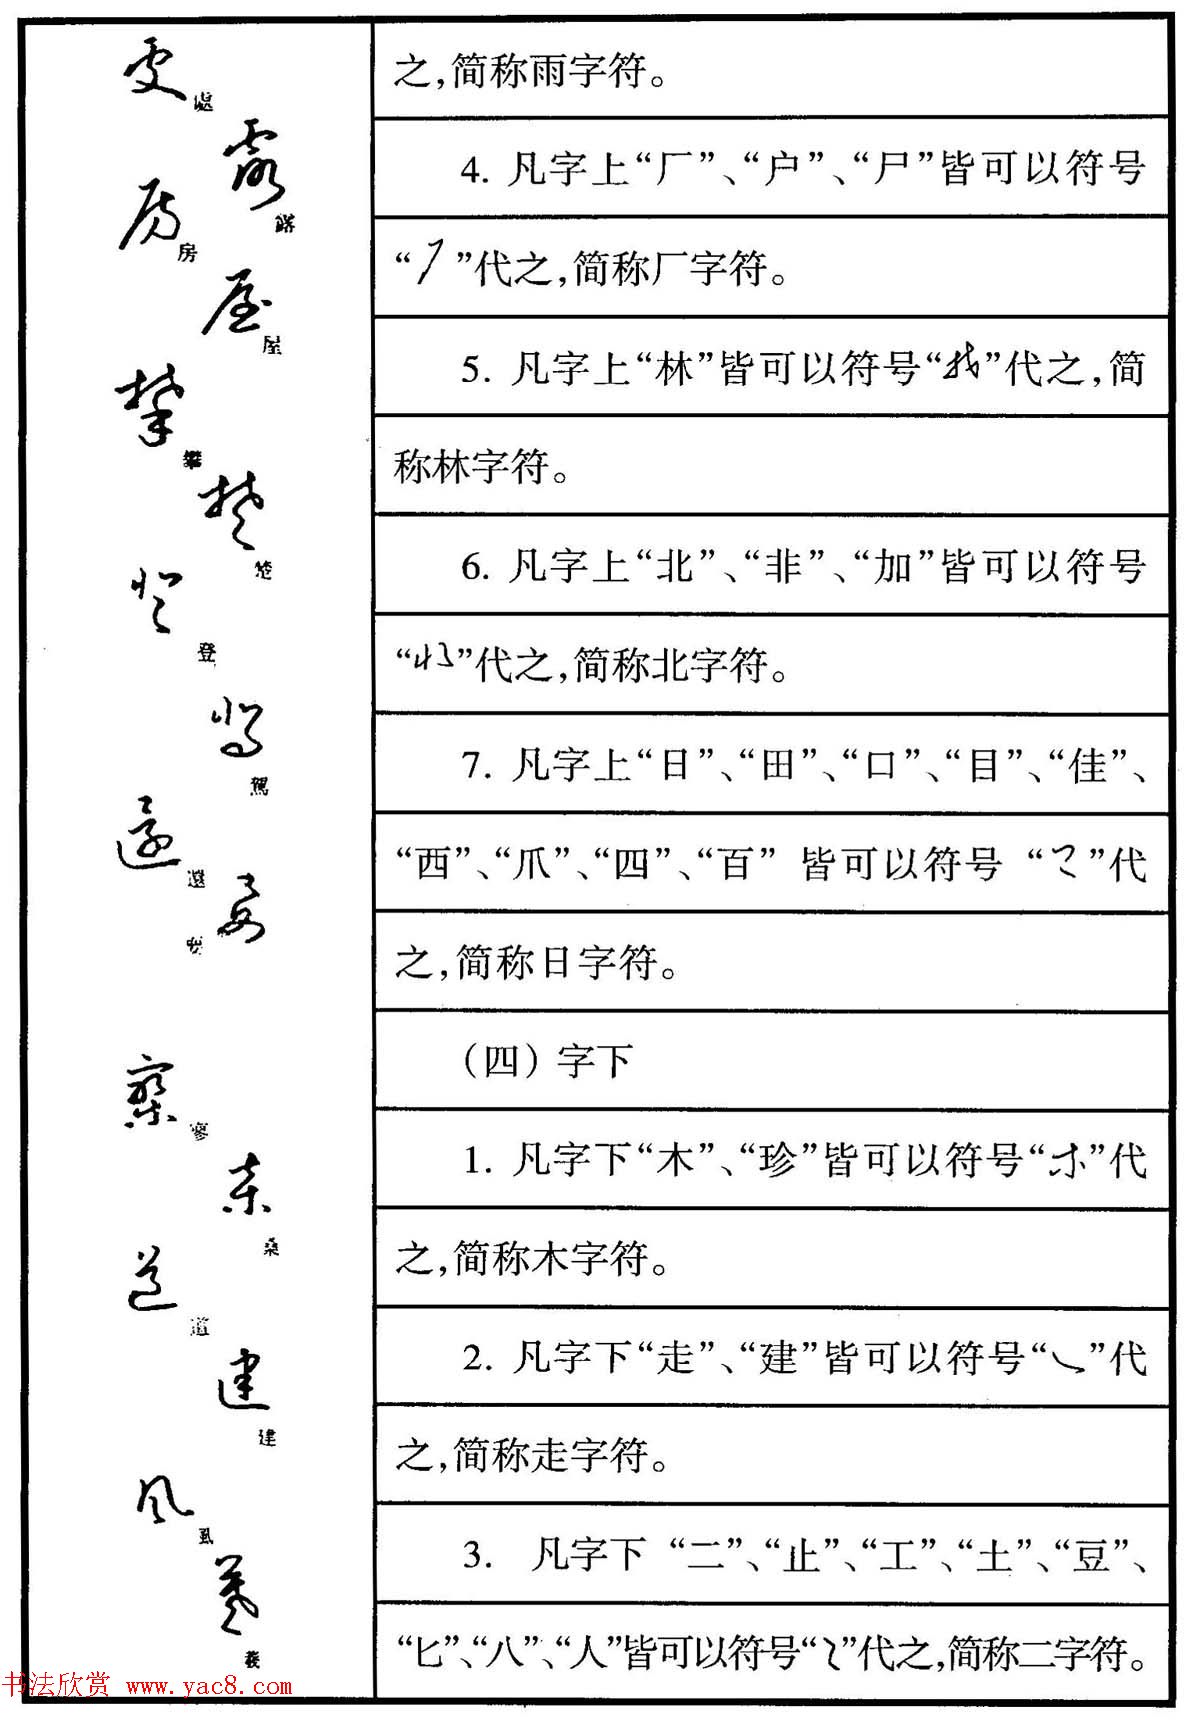 之，简称雨字符。
4. 凡字上“厂”、“户”、“尸”皆可以符号
“ ”代之，简称厂字符。
5. 凡字上“林”皆可以符号“ ”代之，简
称林字符。
6. 凡字上“北”、“非”、“加”皆可以符号
“ ”代之，简称北字符。
7. 凡字上“日”、“田”、“口”、“目”、“隹”、
“西”、“爪”、“四”、“百” 皆可以符号 “ ”代
之，简称日字符。
（四）字下
1. 凡字下“木”、“珍”皆可以符号“ ”代
之，简称木字符。
2. 凡字下“走”、“建”皆可以符号“ ”代
之，简称走字符。
3. 凡字下 “二”、“止”、“工”、“土”、“豆”、
“匕”、“八”、“人”皆可以符号“ ”代之，简称二字符。
處
露
房
屋
攀
楚
登
駕
還
晏
寥
桑
道
建
虱
羲
书法欣赏 www.yac8.com